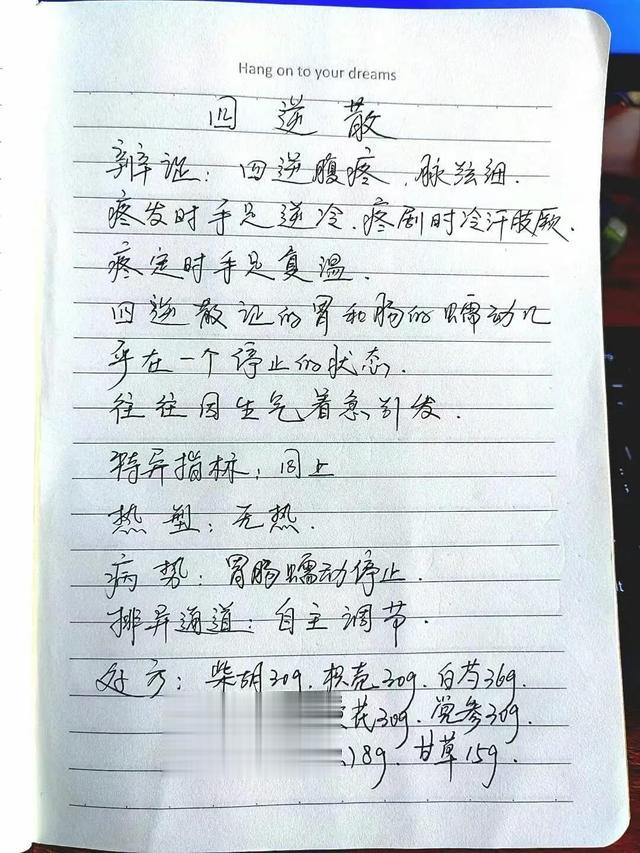 Hang on to your dreams
四逆散
辨证：四逆腹疼、脉弦细.
疼发时手足逆冷、疼剧时冷汗肢厥、
疼定时手足复温.
四逆散证的胃和肠的蠕动几
乎在一个停止的状态.
往往因生气着急引发.
特异指标：同上
热型：无热.
病势：胃肠蠕动停止.
排异通道：自主调节.
处方：柴胡30g、枳壳30g、白芍36g、
芪30g、党参30g、
18g、甘草15g、